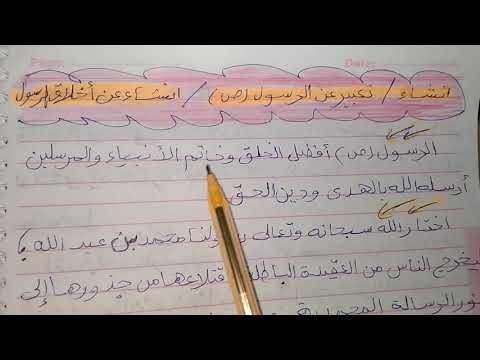 Date:
انشاء / تعبير عن الرسول (ص) / انشاء عن أخلاق الرسول
الرسول (ص) أفضل الخلق وخاتم الأنبياء والمرسلين
أرسله الله بالهدى ودين الحق
اختار الله سبحانه وتعالى محمد بن عبد الله
ليخرج الناس من العقيدة من جذورها إلى
نور الرسالة المحمدية